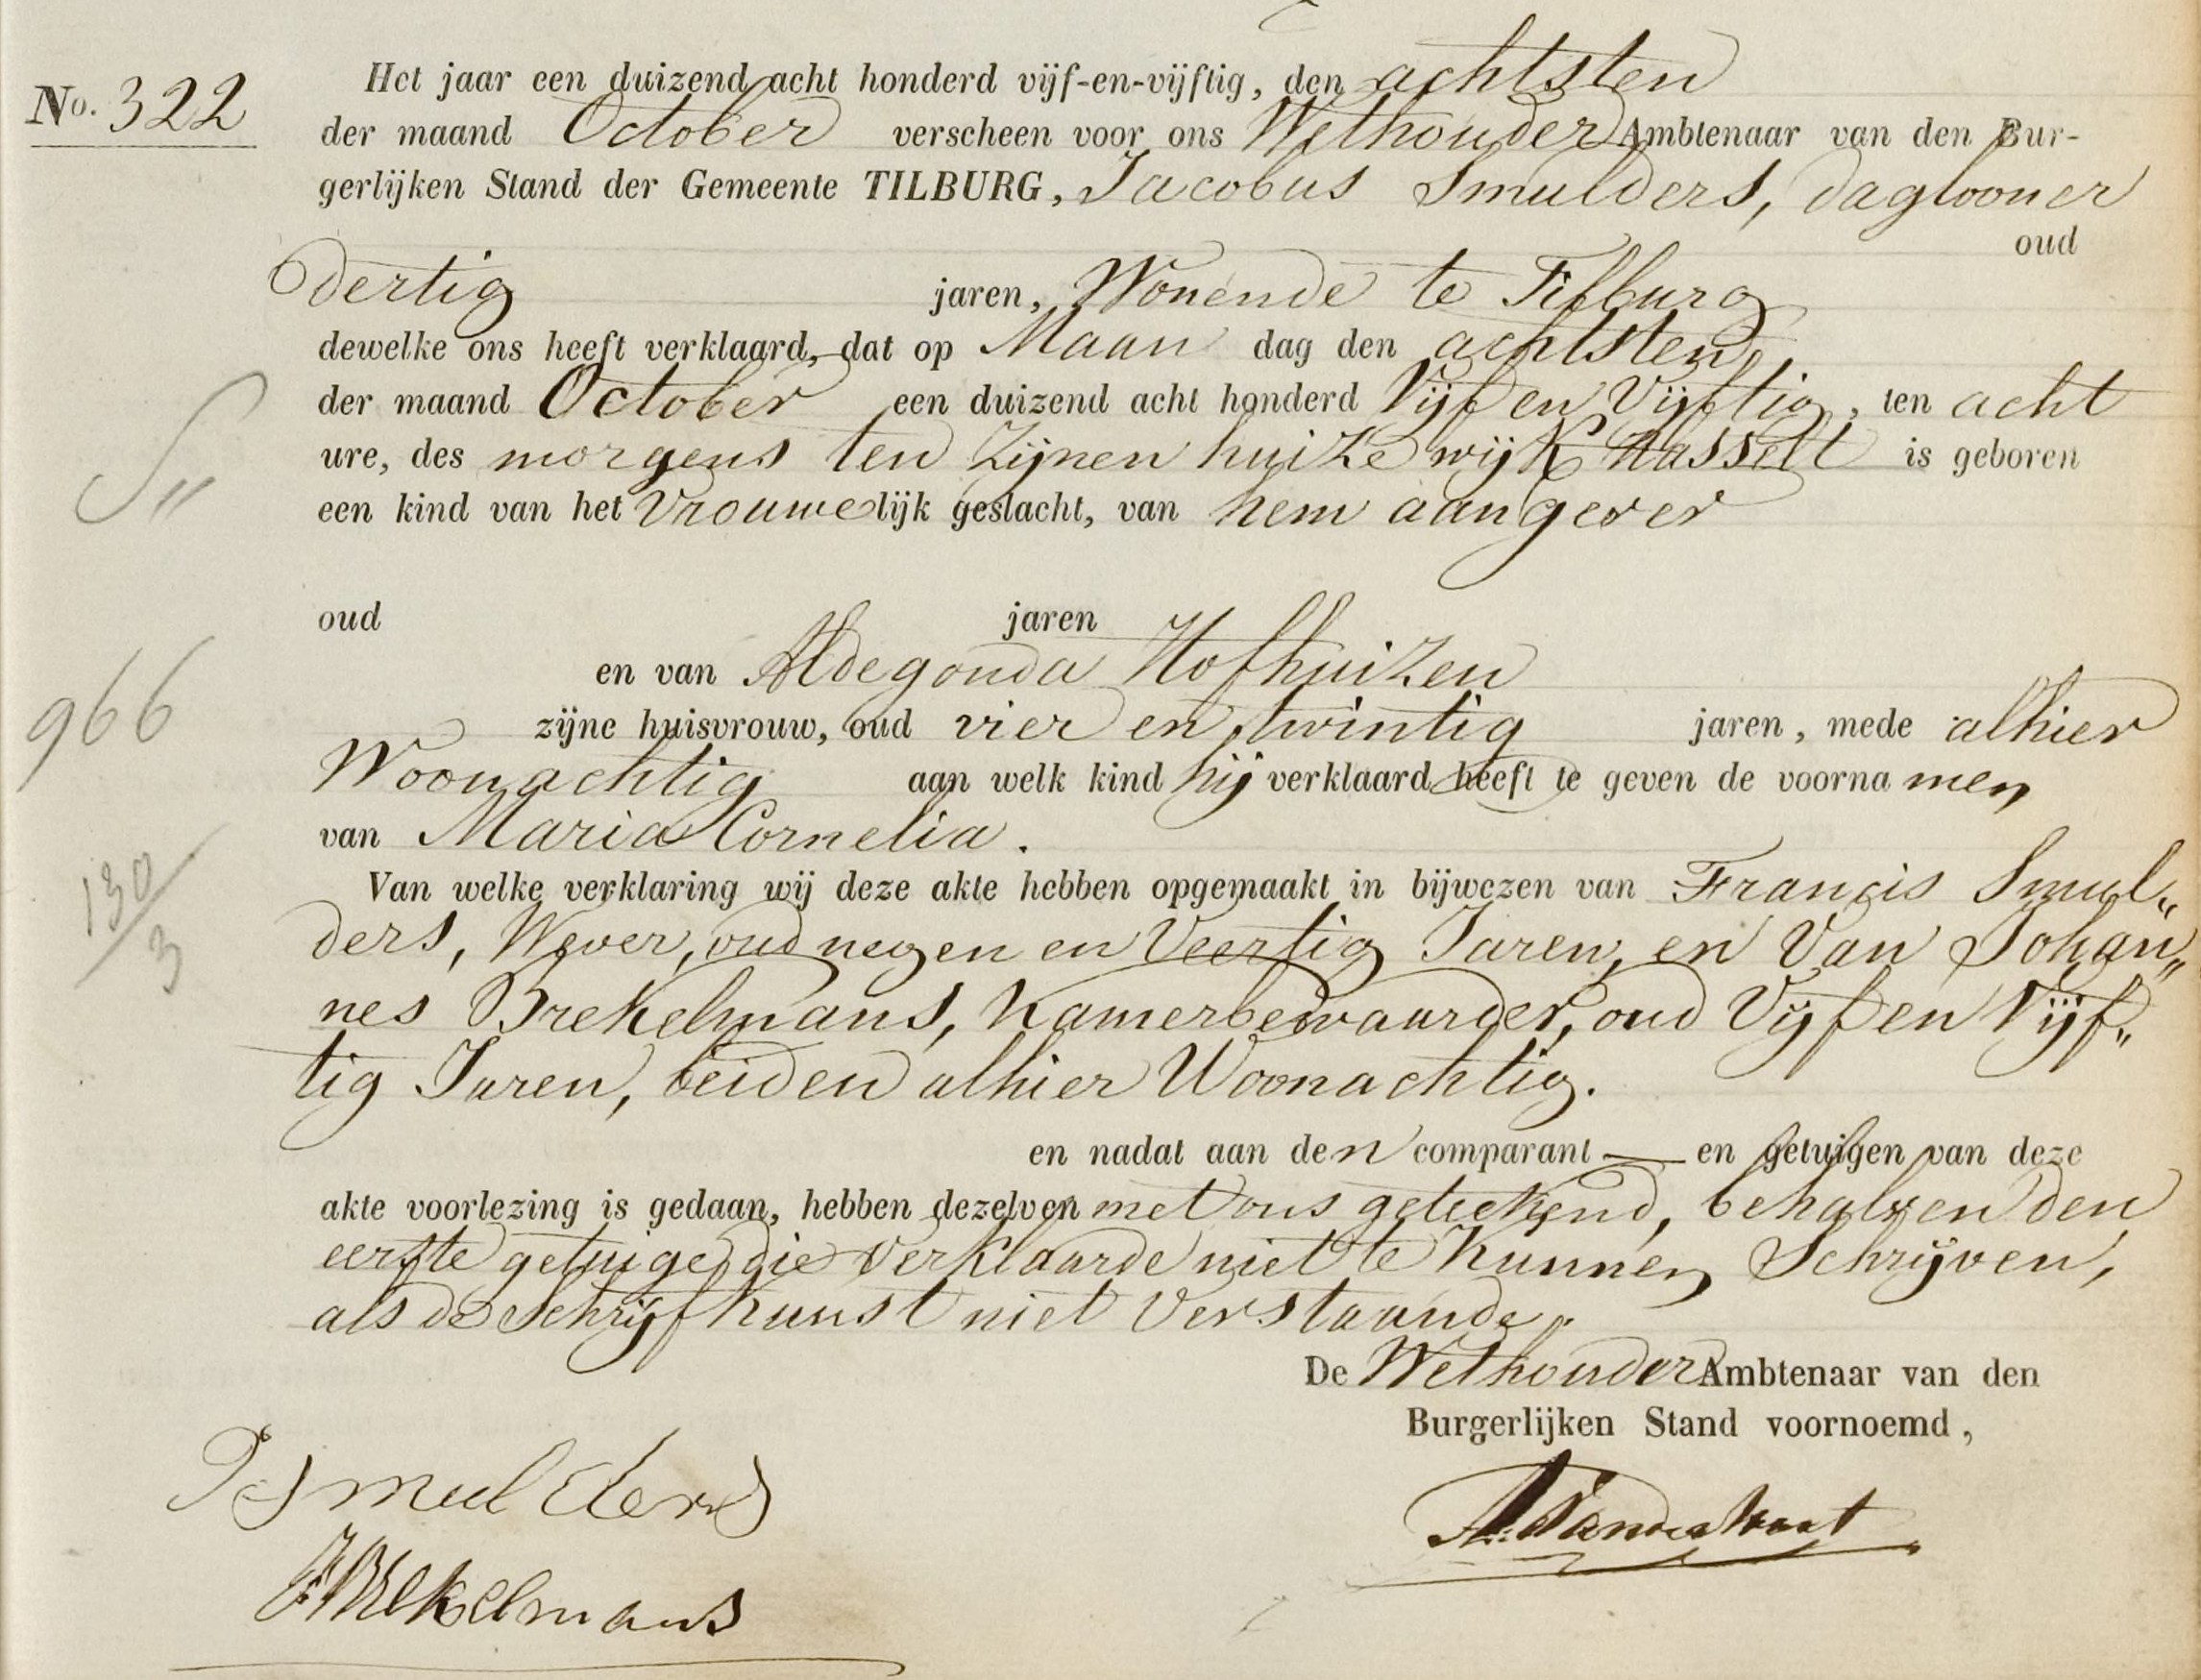 No. 322
Het jaar een duizend acht honderd vijf-en-vijftig, den achtsten
der maand October verscheen voor ons Wethouder Ambtenaar van den Bur-
gerlijken Stand der Gemeente TILBURG, Jacobus Smulders, daglooner
oud
dertig jaren, Wonende te Tilburg
dewelke ons heeft verklaard, dat op Maan dag den achtsten
der maand October een duizend acht honderd Vijf en Vijftig, ten acht
ure, des morgens ten zijnen huize wijk Hasselt is geboren
een kind van het Vrouwelijk geslacht, van hem aangever
oud jaren
en van Aldegonda Hofhuizen
zijne huisvrouw, oud vier en twintig jaren, mede alhier
Woonachtig aan welk kind hij verklaard heeft te geven de voorna men
van Maria Cornelia.
Van welke verklaring wij deze akte hebben opgemaakt in bijwezen van Francis Smul„
ders, Wever, oud negen en Veertig Jaren, en Van Johan„
nes Brekelmans, Kamerbewaarder, oud Vijf en Vijf„
tig Jaren, beiden alhier Woonachtig.
en nadat aan den comparant — en getuigen van deze
akte voorlezing is gedaan, hebben dezelven met ons geteekend, behalven den
eerste getuige die Verklaarde niet te Kunnen Schrijven,
als de Schrijfkunst niet Verstaande.
De Wethouder Ambtenaar van den
Burgerlijken Stand voornoemd,
J Smulders
JBrekelmans
966
130/3